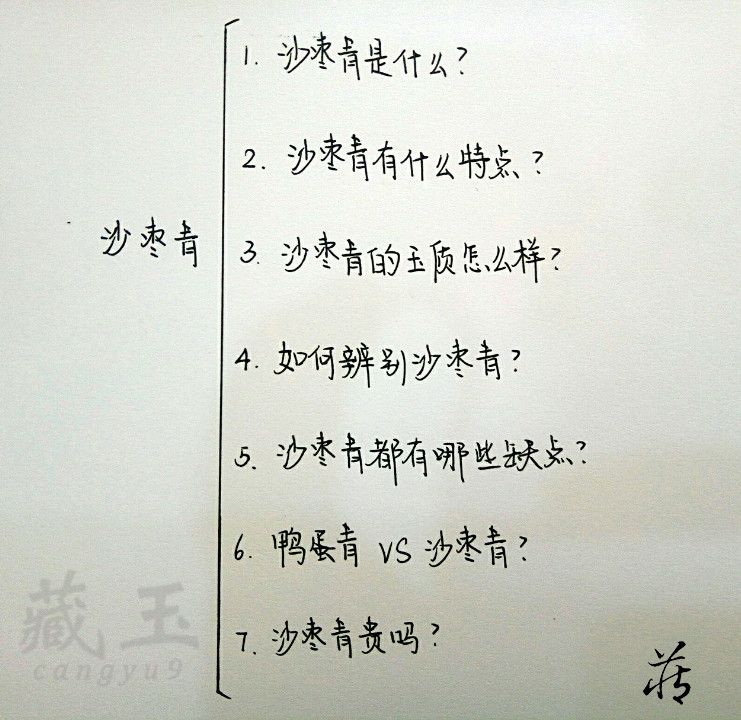 1. 沙枣青是什么?
2. 沙枣青有什么特点?
沙枣青
3. 沙枣青的玉质怎么样?
4. 如何辨别沙枣青?
5. 沙枣青都有哪些缺点?
6. 鸭蛋青 VS 沙枣青?
7. 沙枣青贵吗?
藏玉
cangyu9